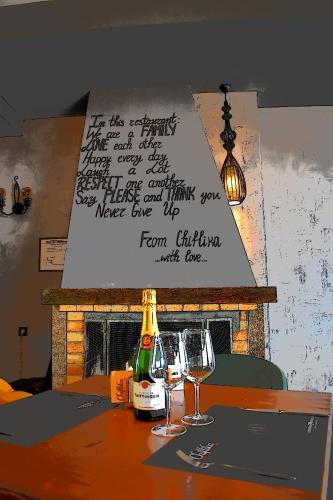 In this restaurant:
We are a FAMILY
LOVE each other
Happy every day
Laugh a Lot
RESPECT one another
Say PLEASE and THANK you
Never Give Up
From Chiflika
...with love...
TAITTINGER